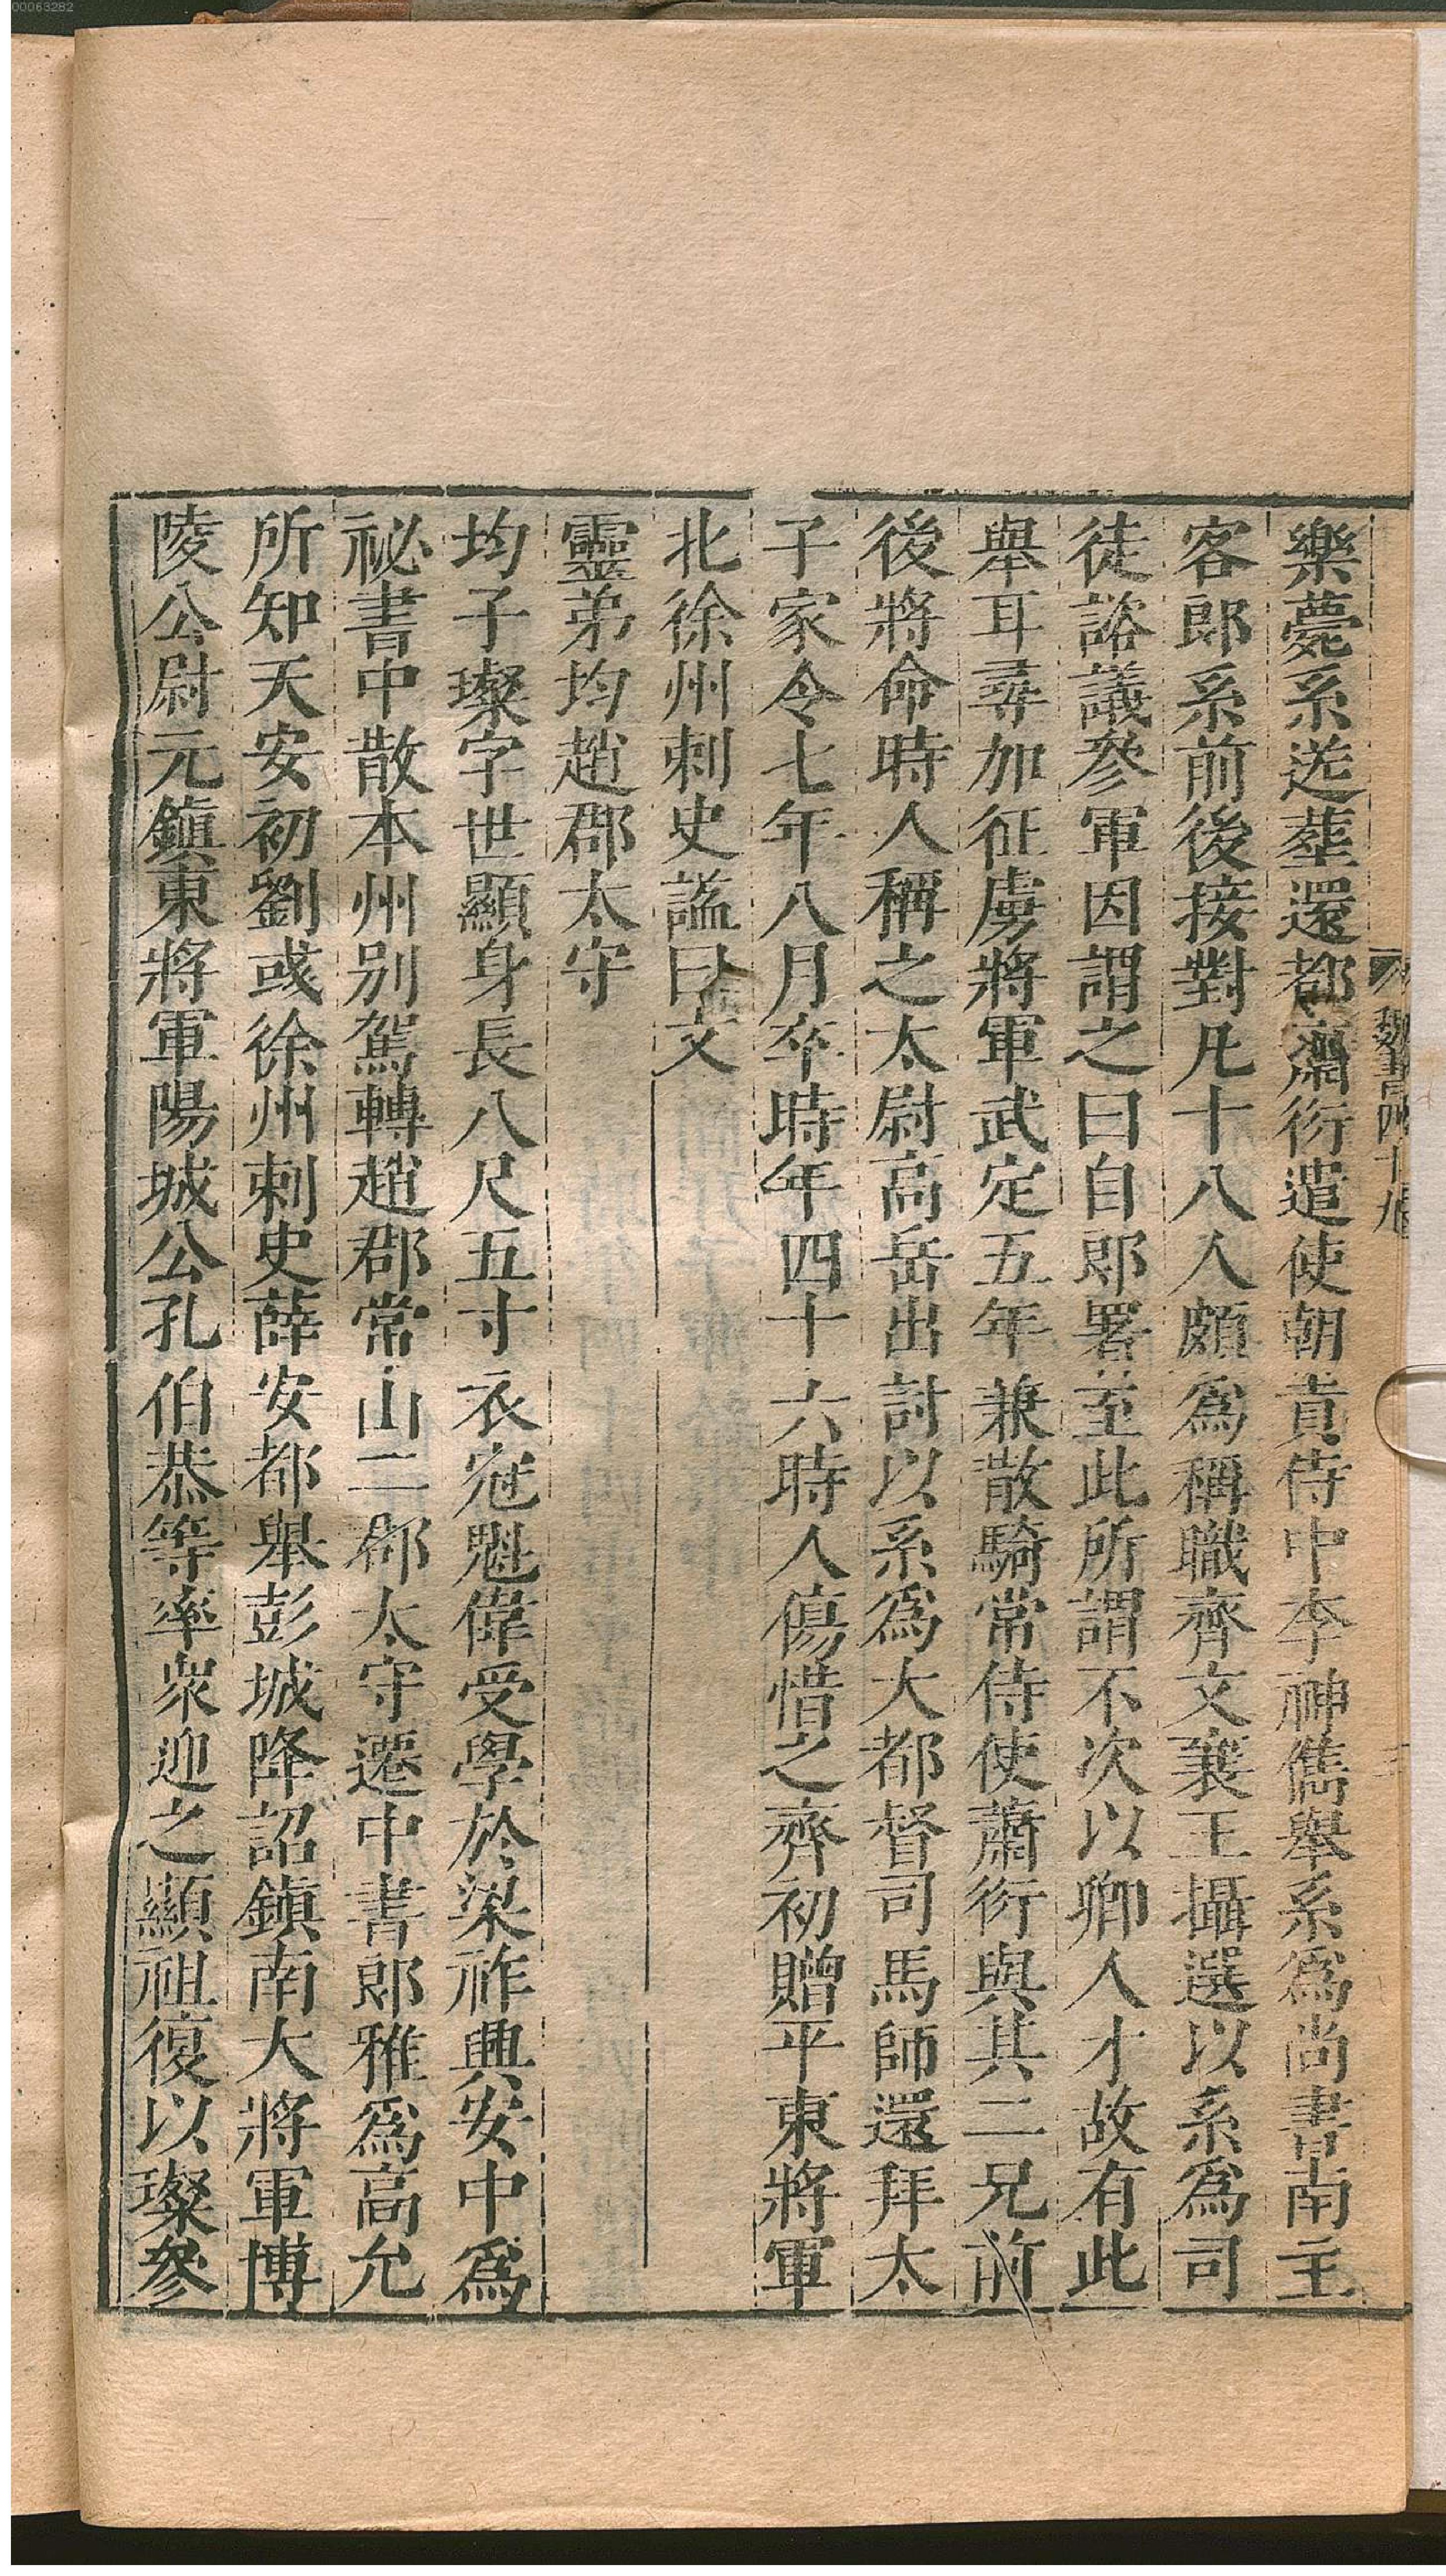 00063282
魏書四十九
三
樂薨系送葬還都蕭衍遣使朝貢侍中李神儁舉系爲尚書南主
客郎系前後接對凡十八人頗爲稱職齊文襄王攝選以系爲司
徒諮議參軍因謂之曰自郎署至此所謂不次以卿人才故有此
舉耳尋加征虜將軍武定五年兼散騎常侍使蕭衍與其二兄前
後將命時人稱之太尉高岳出討以系爲大都督司馬師還拜太
子家令七年八月卒時年四十六時人傷惜之齊初贈平東將軍
北徐州刺史謚曰文
靈弟均趙郡太守
均子璨字世顯身長八尺五寸衣冠魁偉受學於梁祚興安中爲
祕書中散本州別駕轉趙郡常山二郡太守遷中書郎雅爲高允
所知天安初劉彧徐州刺史薛安都舉彭城降詔鎭南大將軍博
陵公尉元鎭東將軍陽城公孔伯恭等率衆迎之顯祖復以璨參